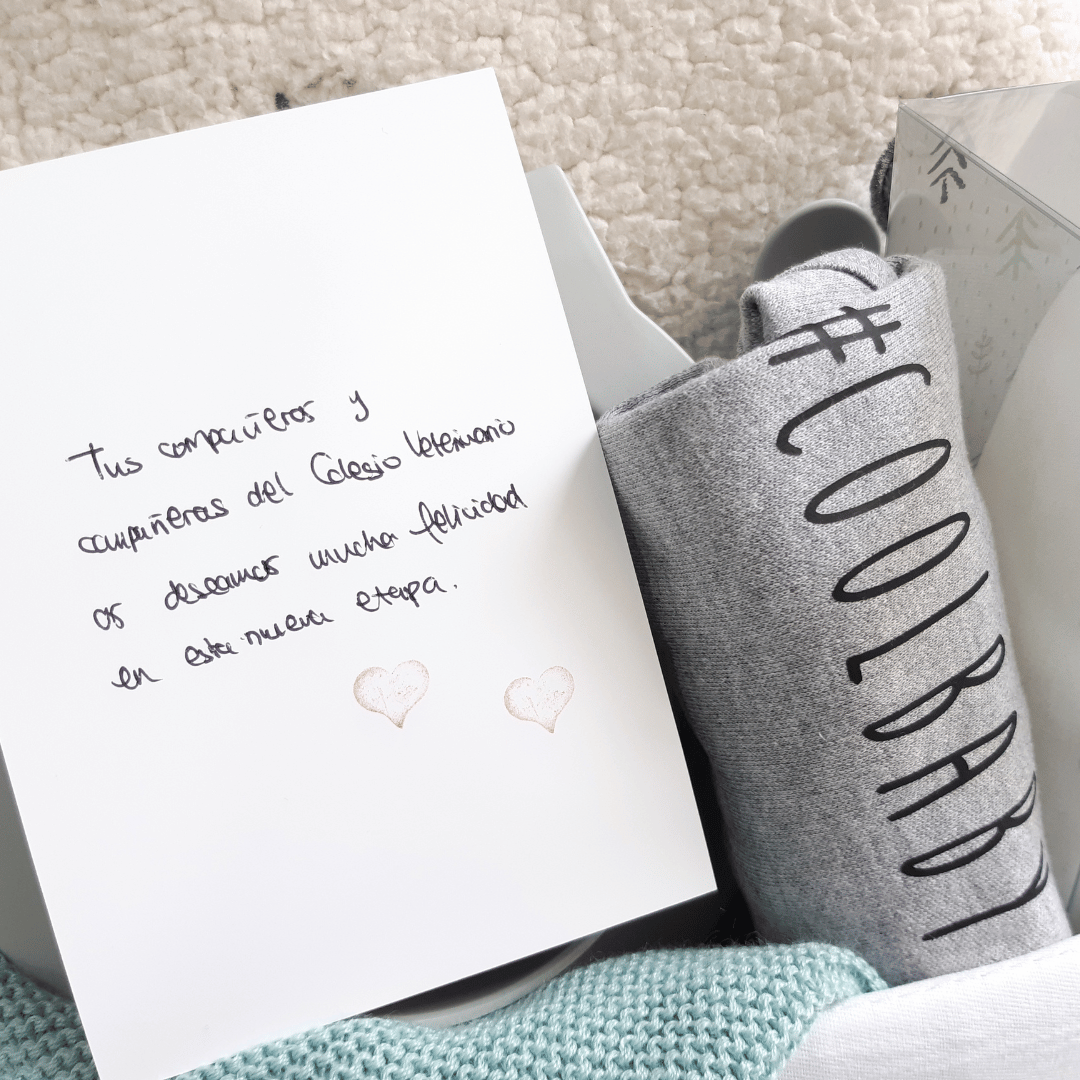 Tus compañeros y
compañeras del Colegio Veterinario
os deseamos mucha felicidad
en esta nueva etapa.
#COOLBABY